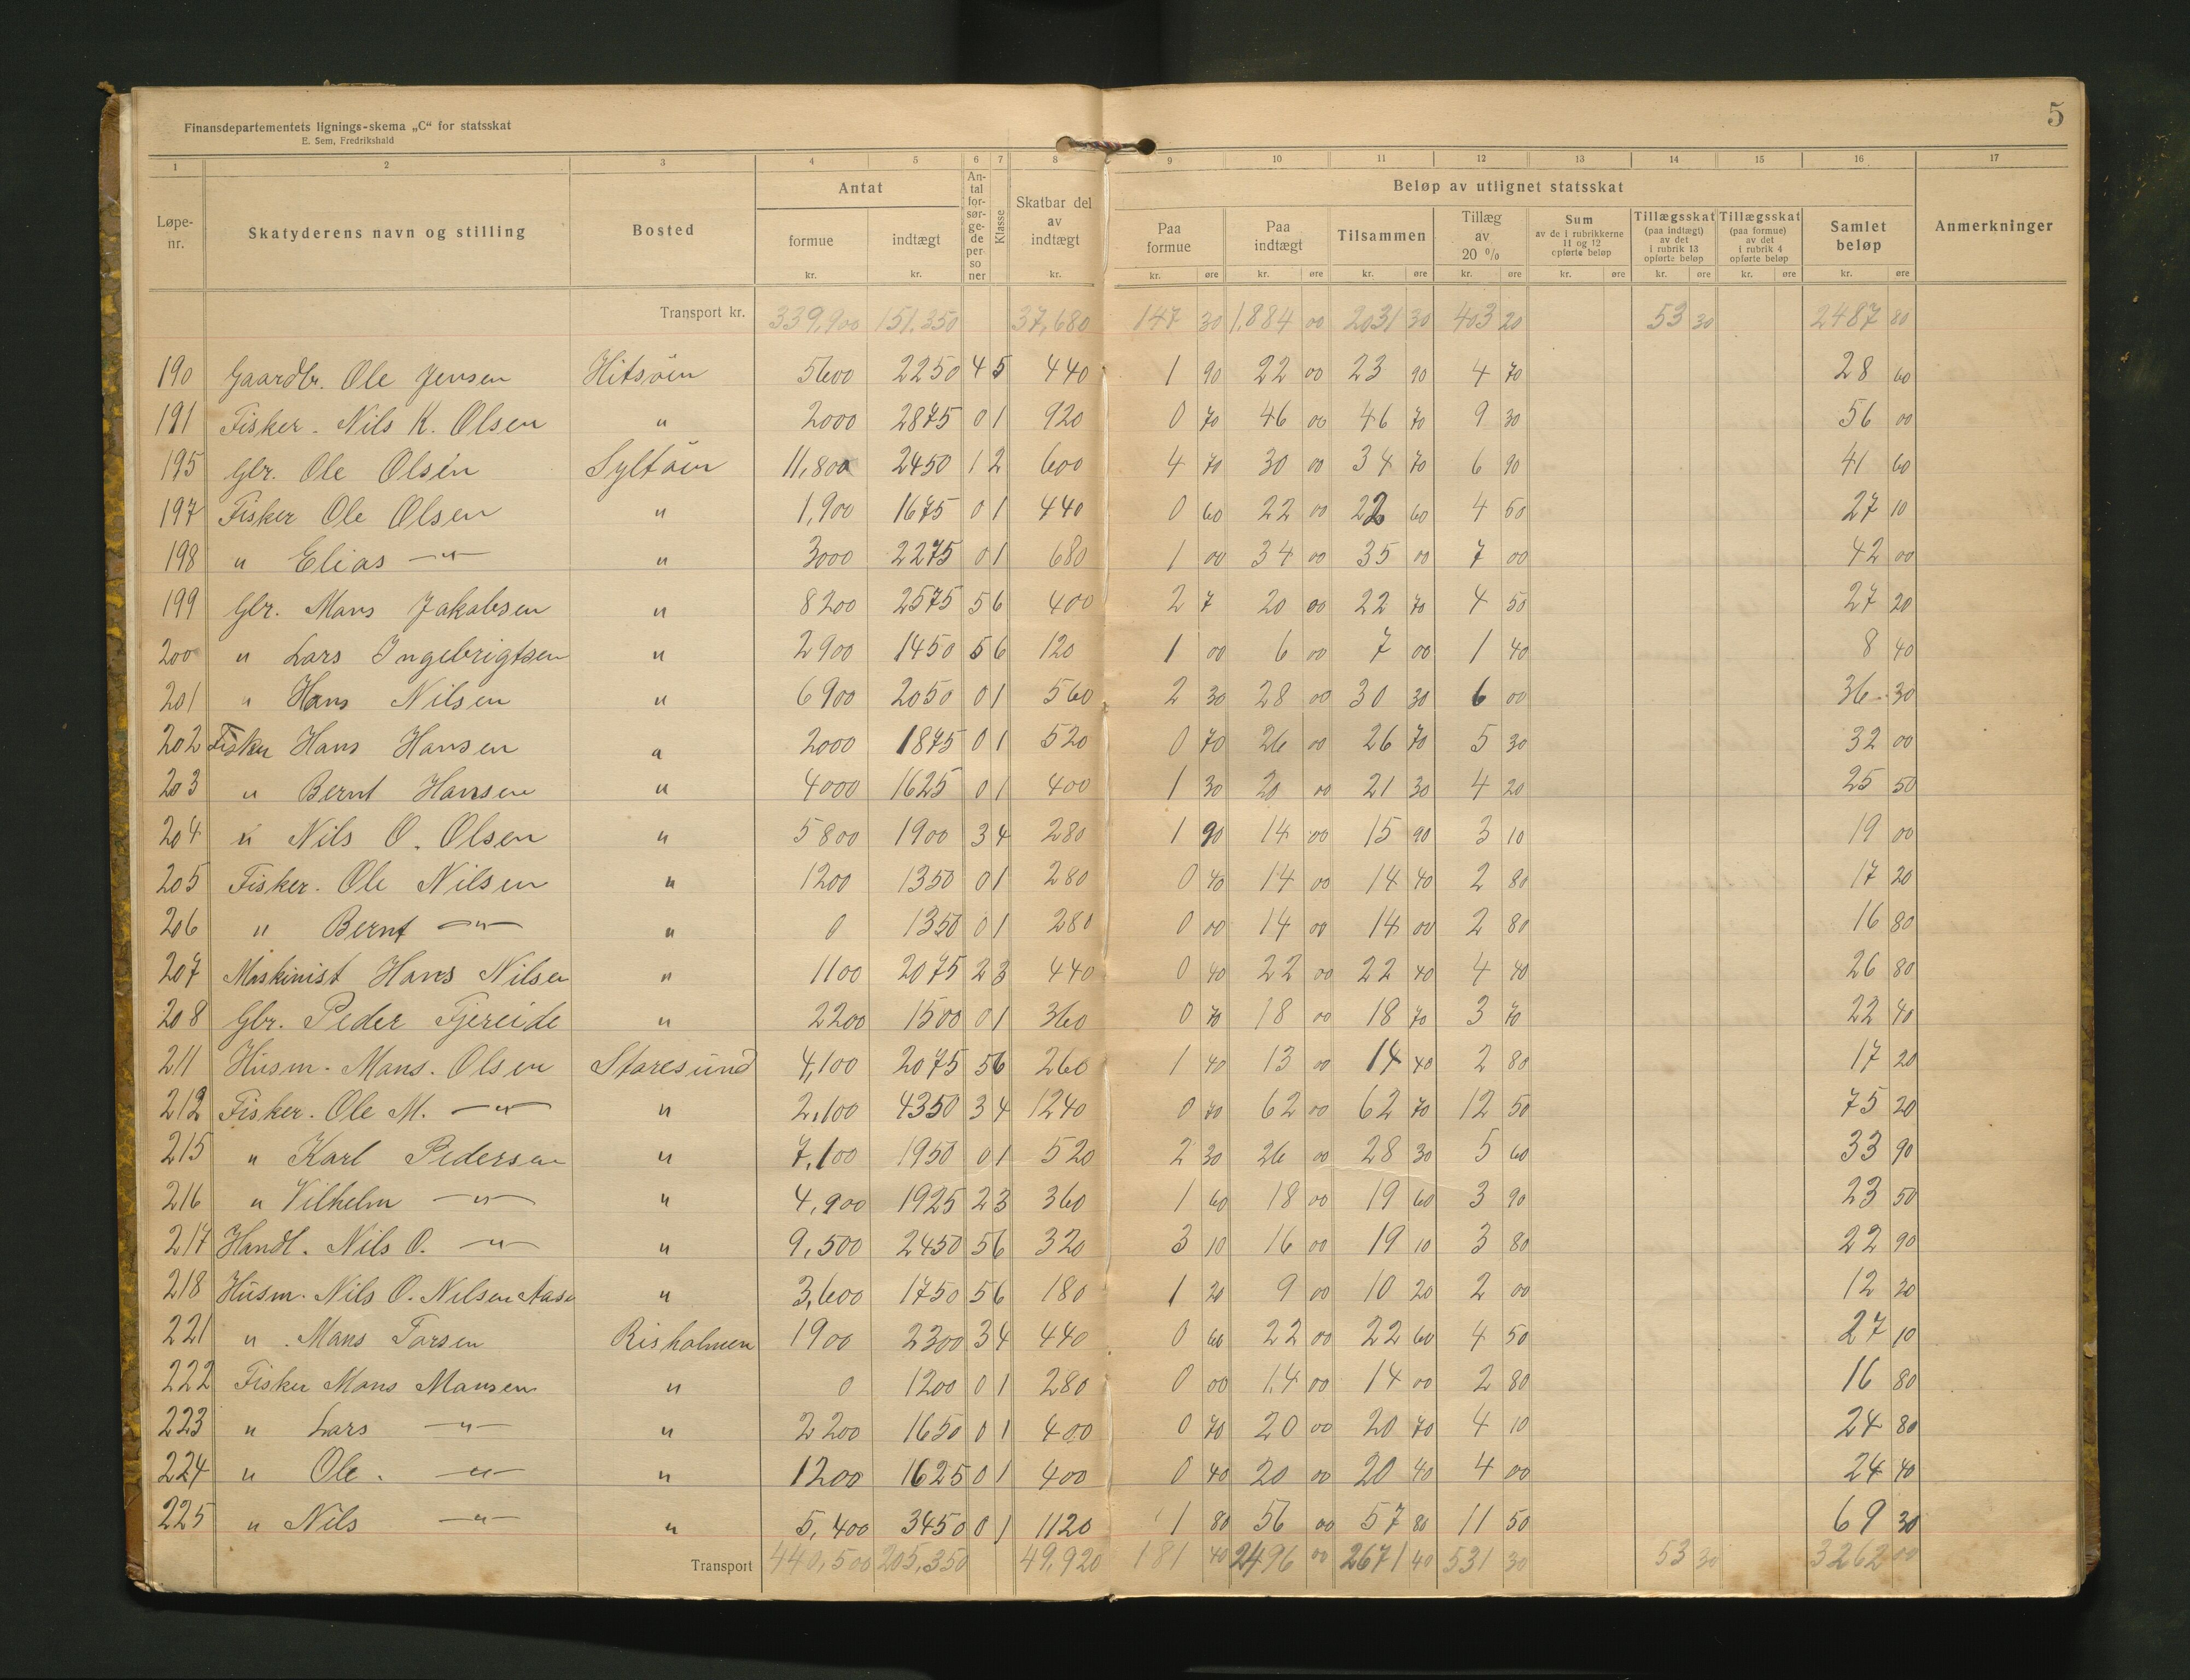 5
Finansdepartementets lignings-skema „C“ for statsskat
E. Sem, Fredrikshald
1 2 3 4 5 6 7 8 9 10 11 12 13 14 15 16 17
Løpe-nr. Skatyderens navn og stilling Bosted Antat formue kr. indtægt kr. Antal forsørgede personer Klasse Skatbar del av indtægt kr. Beløp av utlignet statsskat Paa formue kr. øre Paa indtægt kr. øre Tilsammen kr. øre Tillæg av 20 % kr. øre Sum av de i rubrikkerne 11 og 12 opførte beløp kr. øre Tillægsskat (paa indtægt) av det i rubrik 13 opførte beløp kr. øre Tillægsskat (paa formue) av det i rubrik 4 opførte beløp kr. øre Samlet beløp kr. øre Anmerkninger
Transport kr. 339,900 151.350 37,680 147 30 1,884 00 2031 30 403 20 53 30 2487 80
190 Gaardbr. Ole Jensen Hitsöen 5600 2250 4 5 440 1 90 22 00 23 90 4 70 28 60
191 Fisker. Nils K. Olsen " 2000 2875 0 1 920 0 70 46 00 46 70 9 30 56 00
195 Gbr. Ole Olsen Syltöen 11,800 2450 1 2 600 4 70 30 00 34 70 6 90 41 60
197 Fisker Ole Olsen " 1,900 1675 0 1 440 0 60 22 00 22 60 4 50 27 10
198 " Elias —"— " 3000 2275 0 1 680 1 00 34 00 35 00 7 00 42 00
199 Gbr. Mans Jakobsen " 8200 2575 5 6 400 2 7 20 00 22 70 4 50 27 20
200 " Lars Ingebrigtsen " 2900 1450 5 6 120 1 00 6 00 7 00 1 40 8 40
201 " Hans Nilsen " 6900 2050 0 1 560 2 30 28 00 30 30 6 00 36 30
202 Fisker Hans Hansen " 2000 1875 0 1 520 0 70 26 00 26 70 5 30 32 00
203 " Bernt Hansen " 4000 1625 0 1 400 1 30 20 00 21 30 4 20 25 50
204 " Nils O. Olsen " 5800 1900 3 4 280 1 90 14 00 15 90 3 10 19 00
205 Fisker. Ole Nilsen " 1200 1350 0 1 280 0 40 14 00 14 40 2 80 17 20
206 " Bernt —"— " 0 1350 0 1 280 0 00 14 00 14 00 2 80 16 80
207 Maskinist Hans Nilsen " 1100 2075 2 3 440 0 40 22 00 22 40 4 40 26 80
208 Gbr. Peder Fjereide " 2200 1500 0 1 360 0 70 18 00 18 70 3 70 22 40
211 Husm. Mans. Olsen Staresund 4,100 2075 5 6 260 1 40 13 00 14 40 2 80 17 20
212 Fisker. Ole M. —"— " 2,100 4350 3 4 1240 0 70 62 00 62 70 12 50 75 20
215 " Karl Pedersen " 7,100 1950 0 1 520 2 30 26 00 28 30 5 60 33 90
216 " Vilhelm —"— " 4,900 1925 2 3 360 1 60 18 00 19 60 3 90 23 50
217 Handl. Nils O. —"— " 9,500 2450 5 6 320 3 10 16 00 19 10 3 80 22 90
218 Husm. Nils O. Nilsen Aase " 3,600 1750 5 6 180 1 20 9 00 10 20 2 00 12 20
221 " Mans Torsen Risholmen 1900 2300 3 4 440 0 60 22 00 22 60 4 50 27 10
222 Fisker Mons Mansen " 0 1200 0 1 280 0 00 14 00 14 00 2 80 16 80
223 " Lars —"— " 2200 1650 0 1 400 0 70 20 00 20 70 4 10 24 80
224 " Ole. —"— " 1200 1625 0 1 400 0 40 20 00 20 40 4 00 24 40
225 " Nils —"— " 5,400 3450 0 1 1120 1 80 56 00 57 80 11 50 69 30
Transport 440,500 205,350 49,920 181 40 2496 00 2671 40 531 30 53 30 3262 00